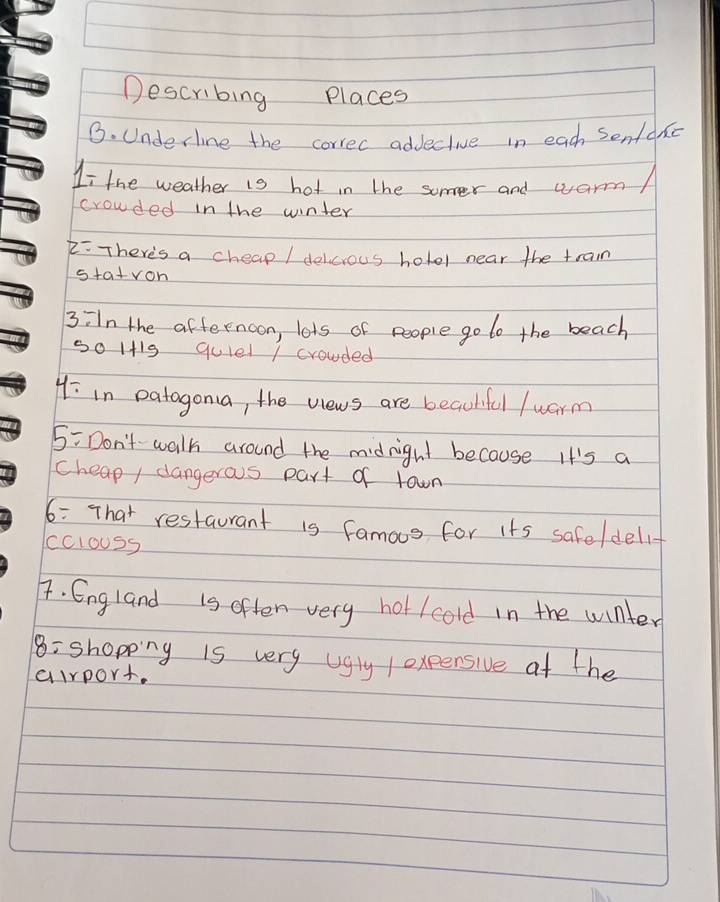 Describing Places
B. Underline the correc addective in each sentence
1= the weather is hot in the summer and warm /
crowded in the winter
2= There's a cheap / delicious hotel near the train
station
3= In the afternoon, lots of people go to the beach
so it is quiet / crowded
4= in patagonia, the views are beautiful / warm
5= Don't walk around the midnight because it's a
cheap / dangerous part of town
6= That restaurant is famous for its safe / deli-
cciouss
7. England is often very hot / cold in the winter
8= shopping is very ugly / expensive at the
airport.